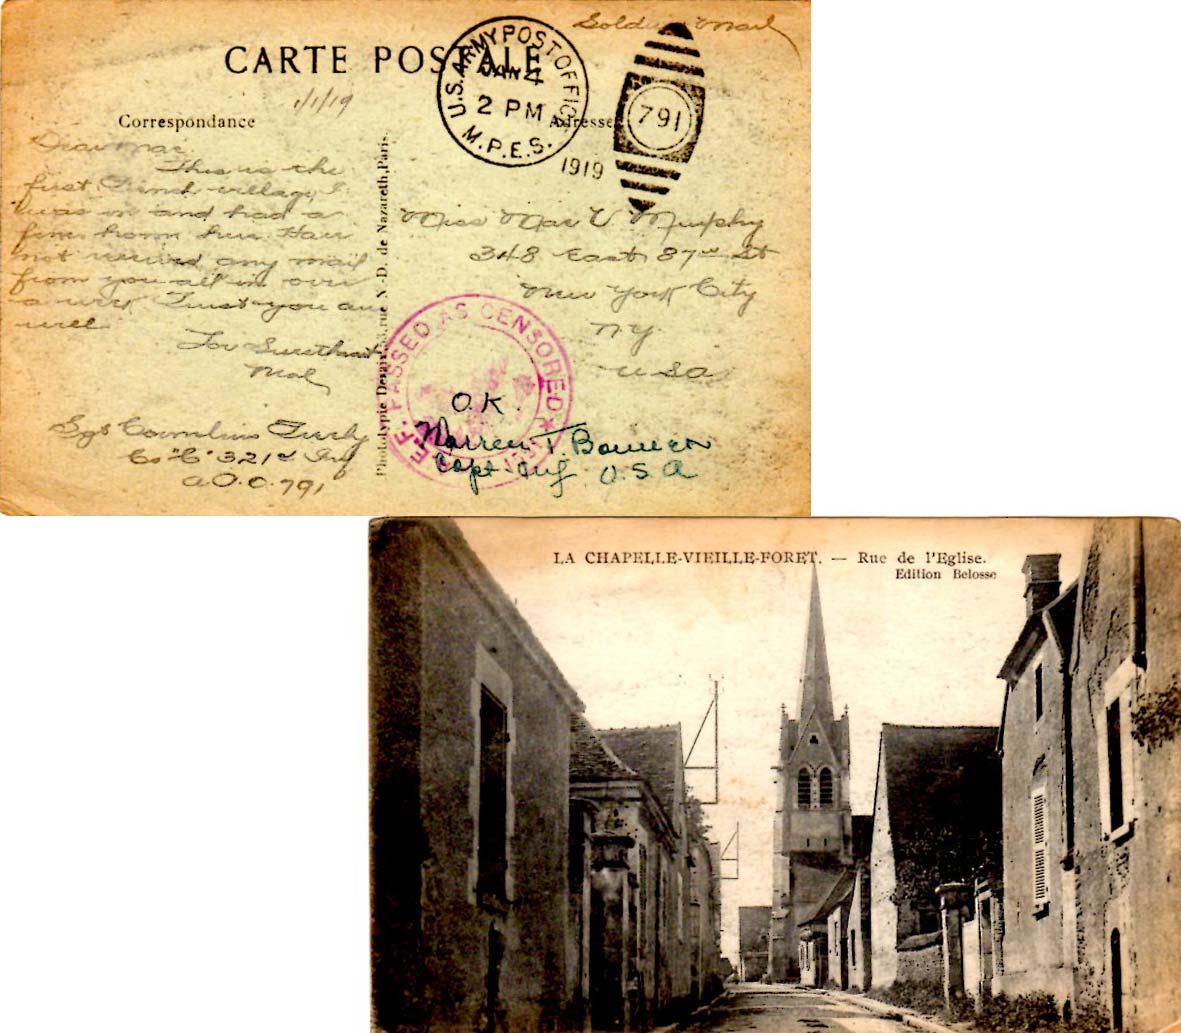 Soldiers Mail
CARTE POSTALE
U.S. ARMY POST OFFICE
JAN 4
2 PM
M.P.E.S.
1919
791
1/1/19
Correspondance
Adresse
Dear Mae,
This is the
first French village I
was in and had a
fine home here. Have
not received any mail
from you all in over
a week Trust you are
well
Sweetheart
Sgt Cornelius
Co "C" 321st Inf
A.P.O. 791
Miss Mae V Murphy
348 East 87th St
New York City
N.Y.
U S A
Phototypie Desaix, 13, rue N.-D. de Nazareth, Paris.
A.E.F. PASSED AS CENSORED
O.K.
Warren T.
Capt. Inf. U.S.A
LA CHAPELLE-VIEILLE-FORET. — Rue de l'Eglise.
Edition Belosse